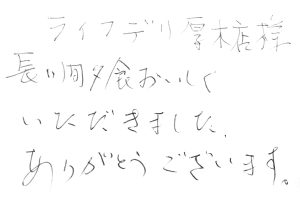 ライフデリ厚木店様
長い間夕食おいしく
いただきました。
ありがとうございます。